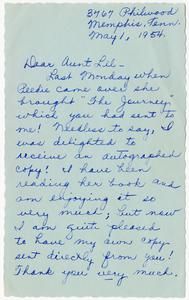 3767 Philwood
Memphis, Tenn.
May 1, 1954.
Dear Aunt Lil –
Last Monday when
came over she
brought "The Journey"
which you had sent to
me! Needless to say, I
was delighted to
receive an autographed
copy! I have been
reading her book and
am enjoying it so
very much; but now
I am quite pleased
to have my own copy
sent directly from you!
Thank you very much.